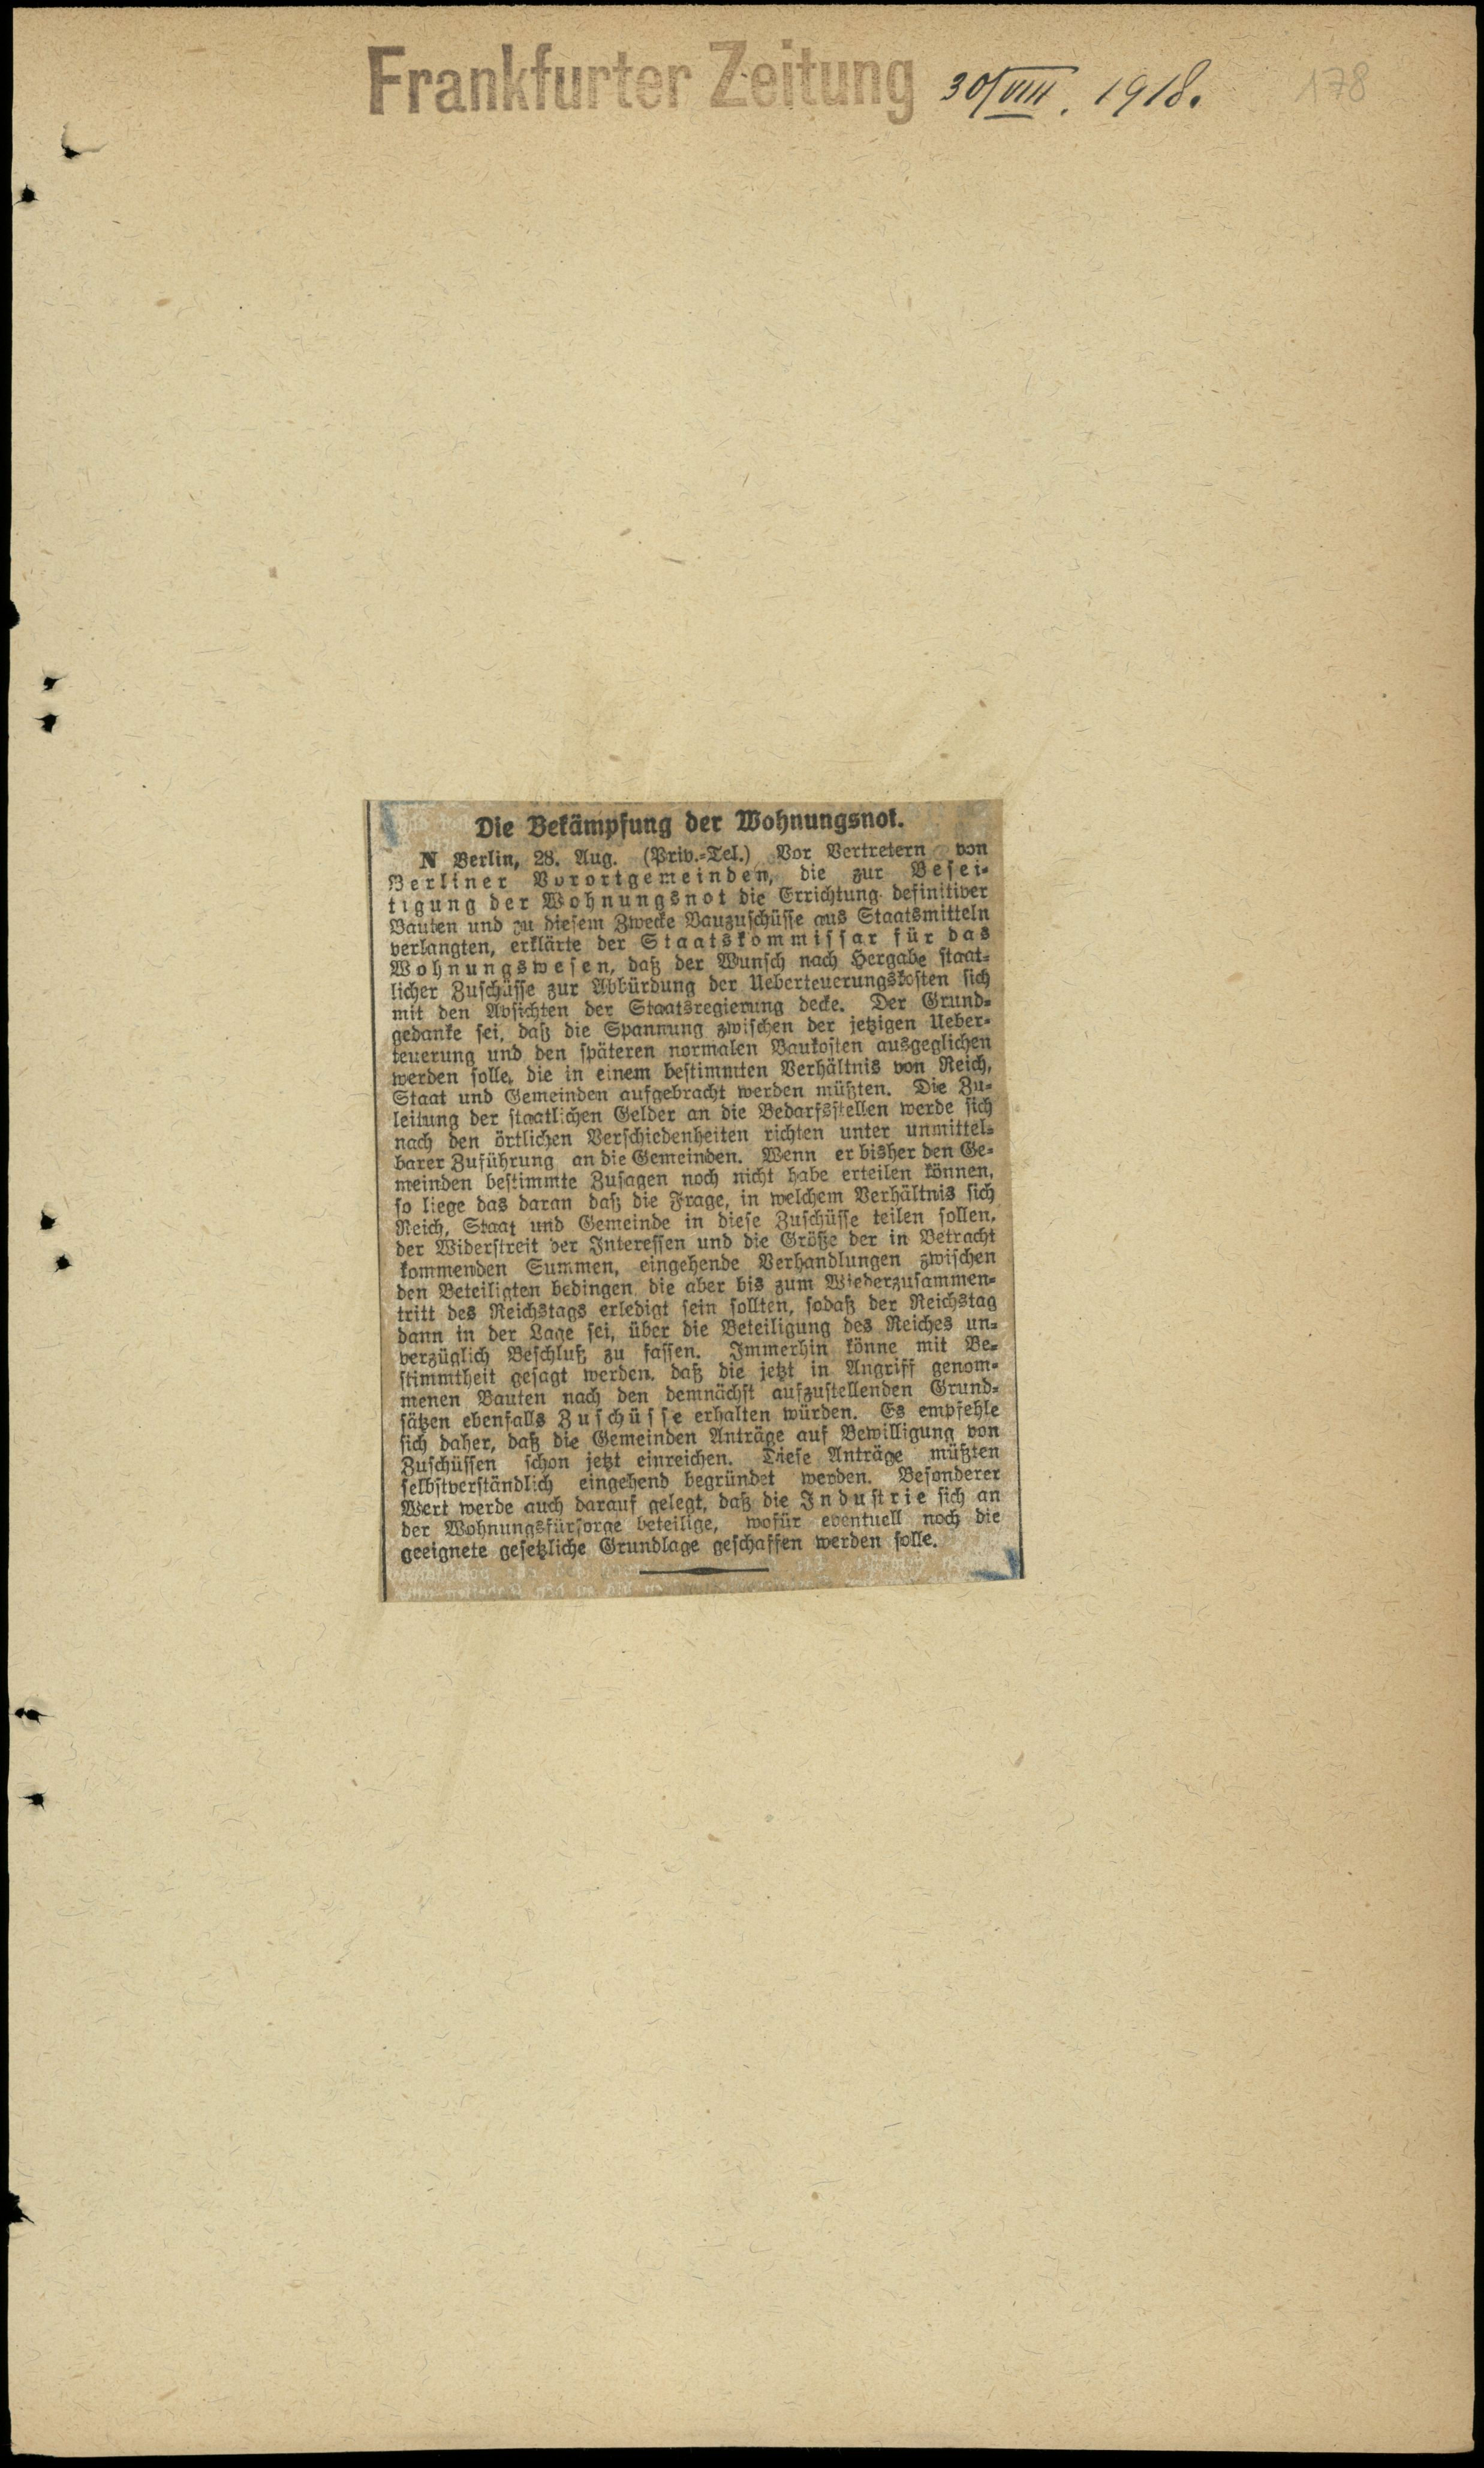 Frankfurter Zeitung 30/VIII. 1918. 178
Die Bekämpfung der Wohnungsnot.
N Berlin, 28. Aug. (Priv.-Tel.) Vor Vertretern von
Berliner Vorortgemeinden, die zur Besei-
tigung der Wohnungsnot die Errichtung definitiver
Bauten und zu diesem Zwecke Bauzuschüsse aus Staatsmitteln
verlangten, erklärte der Staatskommissar für das
Wohnungswesen, daß der Wunsch nach Hergabe staat-
licher Zuschüsse zur Abbürdung der Ueberteuerungskosten sich
mit den Absichten der Staatsregierung decke. Der Grund-
gedanke sei, daß die Spannung zwischen der jetzigen Ueber-
teuerung und den späteren normalen Baukosten ausgeglichen
werden solle, die in einem bestimmten Verhältnis von Reich,
Staat und Gemeinden aufgebracht werden müßten. Die Zu-
leitung der staatlichen Gelder an die Bedarfsstellen werde sich
nach den örtlichen Verschiedenheiten richten unter unmittel-
barer Zuführung an die Gemeinden. Wenn er bisher den Ge-
meinden bestimmte Zusagen noch nicht habe erteilen können,
so liege das daran daß die Frage, in welchem Verhältnis sich
Reich, Staat und Gemeinde in diese Zuschüsse teilen sollen,
der Widerstreit der Interessen und die Größe der in Betracht
kommenden Summen, eingehende Verhandlungen zwischen
den Beteiligten bedingen die aber bis zum Wiederzusammen-
tritt des Reichstags erledigt sein sollten, sodaß der Reichstag
dann in der Lage sei, über die Beteiligung des Reiches un-
verzüglich Beschluß zu fassen. Immerhin könne mit Be-
stimmtheit gesagt werden, daß die jetzt in Angriff genom-
menen Bauten nach den demnächst aufzustellenden Grund-
sätzen ebenfalls Zuschüsse erhalten würden. Es empfehle
sich daher, daß die Gemeinden Anträge auf Bewilligung von
Zuschüssen schon jetzt einreichen. Diese Anträge müßten
selbstverständlich eingehend begründet werden. Besonderer
Wert werde auch darauf gelegt, daß die Industrie sich an
der Wohnungsfürsorge beteilige, wofür eventuell noch die
geeignete gesetzliche Grundlage geschaffen werden solle.